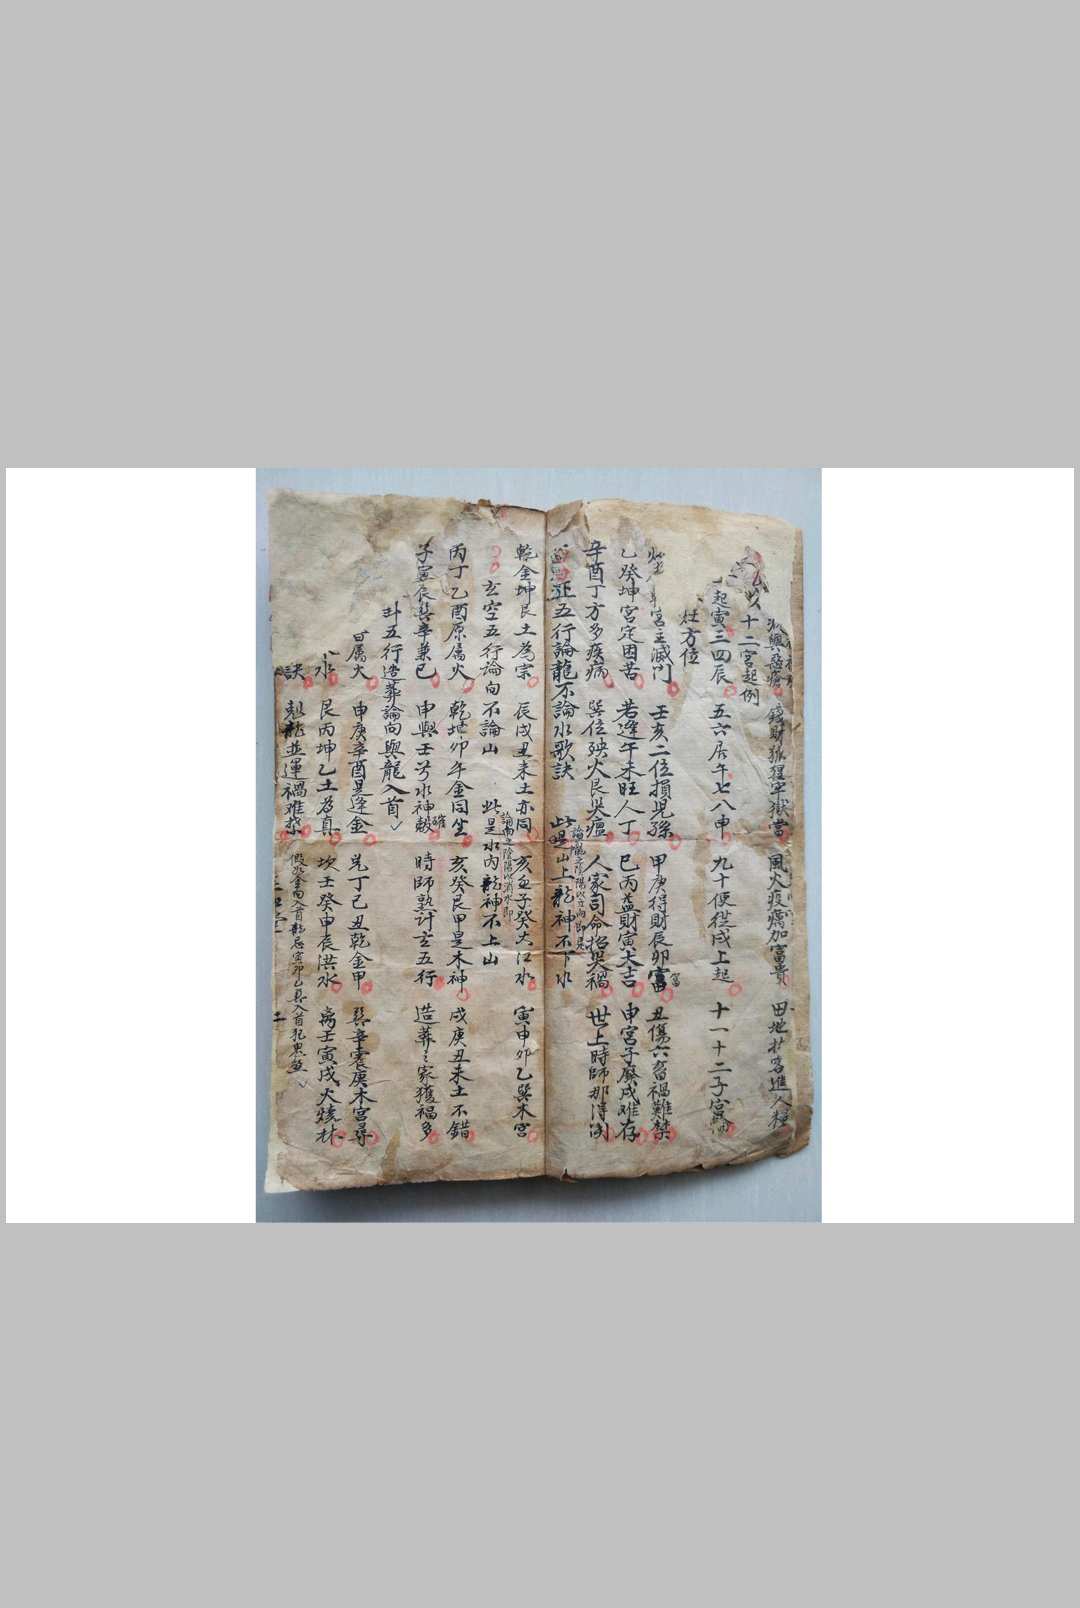 錢財孤 牢獄當 風火疫 加富貴 田地 進人
十二宮起例
起寅三四辰 五六居午七八申 九十便從戌上起 十一十二子宮
灶方位
宮主滅門 壬亥二位損兒孫 甲庚得財辰卯富 丑傷六畜禍難禁
乙癸坤宮定困苦 若逢午未旺人丁 巳丙益財寅大吉 申宮子癸戌难存
辛酉丁方多疾病 巽位殃火艮災瘟 人家司命招災禍 世上時師那得
正五行論龍不論水歌訣 此是山上龍神不下水
論龍之陰陽以立向即見
乾金坤艮土為宗 辰戌丑未土亦同 亥壬子癸大江水 寅申卯乙巽木宮
論向之陰陽以消水即
玄空五行論向不論山 此是水內龍神不上山
丙丁乙酉原属火 乾坤卯午金同坐 亥癸艮甲是木神 戌庚丑未土不錯
子寅辰巽辛兼巳 申與壬兮水神 時師熟計玄五行 造葬之家獲福多
卦五行造葬論向與龍入首
属火 申庚辛酉是逢金 兌丁己丑乾金甲 巽辛震庚木宮尋
水 艮丙坤乙土為真 坎壬癸申辰洪水 离壬寅戌火燒林
訣 剋龍並運禍难禁 假如金向入首龍忌寅卯乙巽入首犯